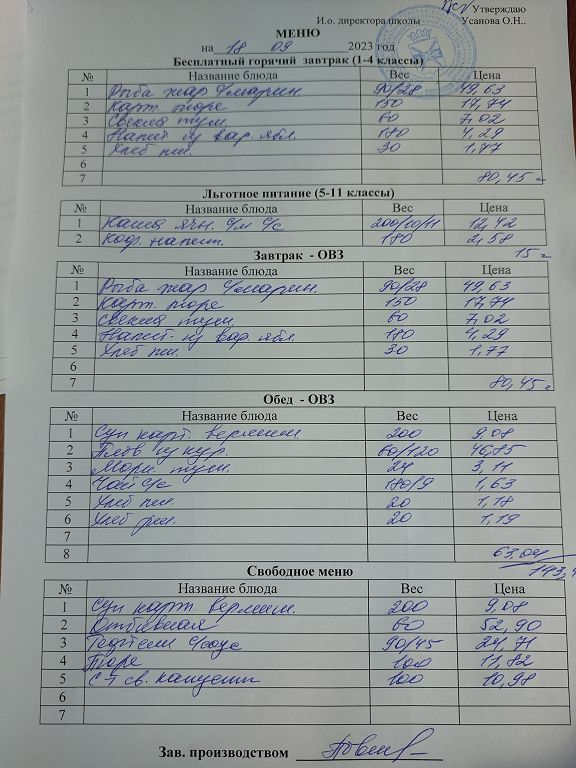 Утверждаю
И.о. директора школы Усанова О.Н..
МЕНЮ
на 18 09 2023 год
Бесплатный горячий завтрак (1-4 классы)
№ Название блюда Вес Цена
1 Рыба жар с/марин. 90/28 49,63
2 Карт. пюре 150 17,74
3 Свекла туш. 60 7,02
4 Напит. из вар. ябл. 180 4,29
5 Хлеб пш. 30 1,77
6
7 80,45
Льготное питание (5-11 классы)
№ Название блюда Вес Цена
1 Каша ячн. с/м с/с 200/10/11 12,42
2 Коф. напит. 180 2,58
15
Завтрак - ОВЗ
№ Название блюда Вес Цена
1 Рыба жар с/марин. 90/28 49,63
2 Карт. пюре 150 17,74
3 Свекла туш. 60 7,02
4 Напит. из вар. ябл. 180 4,29
5 Хлеб пш. 30 1,77
6
7 80,45
Обед - ОВЗ
№ Название блюда Вес Цена
1 Суп карт. вермиш 200 9,08
2 Плов из кур. 60/120 46,85
3 Морк. туш. 24 3,11
4 Чай с/с 180/9 1,63
5 Хлеб пш. 20 1,18
6 Хлеб рж. 20 1,19
7
8 63,04
143,4
Свободное меню
№ Название блюда Вес Цена
1 Суп карт. вермиш. 200 9,08
2 Отбивная 60 52,90
3 Тефтели с/соус 90/45 24,71
4 Пюре 100 11,82
5 С-т св. капусты 100 10,98
6
7
Зав. производством